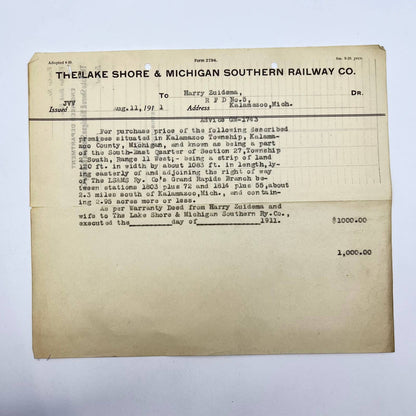 Adopted 4-05.
Form 2794.
THE LAKE SHORE & MICHIGAN SOUTHERN RAILWAY CO.
To Harry Zuidema, DR.
JVV R F D No.5,
Issued Aug.11,1911 Address Kalamazoo,Mich.
Advice GM-1743
For purchase price of the following described
premises situated in Kalamazoo Township, Kalama-
zoo County, Michigan, and known as being a part
of the South-East Quarter of Section 27,Township
2 South, Range 11 West;- being a strip of land
120 ft. in width by about 1083 ft. in length,ly-
ing easterly of and adjoining the right of way
of The LS&MS Ry. Co's Grand Rapids Branch be-
tween stations 1803 plus 72 and 1814 plus 55,about
2.3 miles south of Kalamazoo,Mich., and contain-
ing 2.95 acres more or less.
As per Warranty Deed from Harry Zuidema and
wife to The Lake Shore & Michigan Southern Ry.Co.,
executed the day of 1911. $1000.00
1,000.00